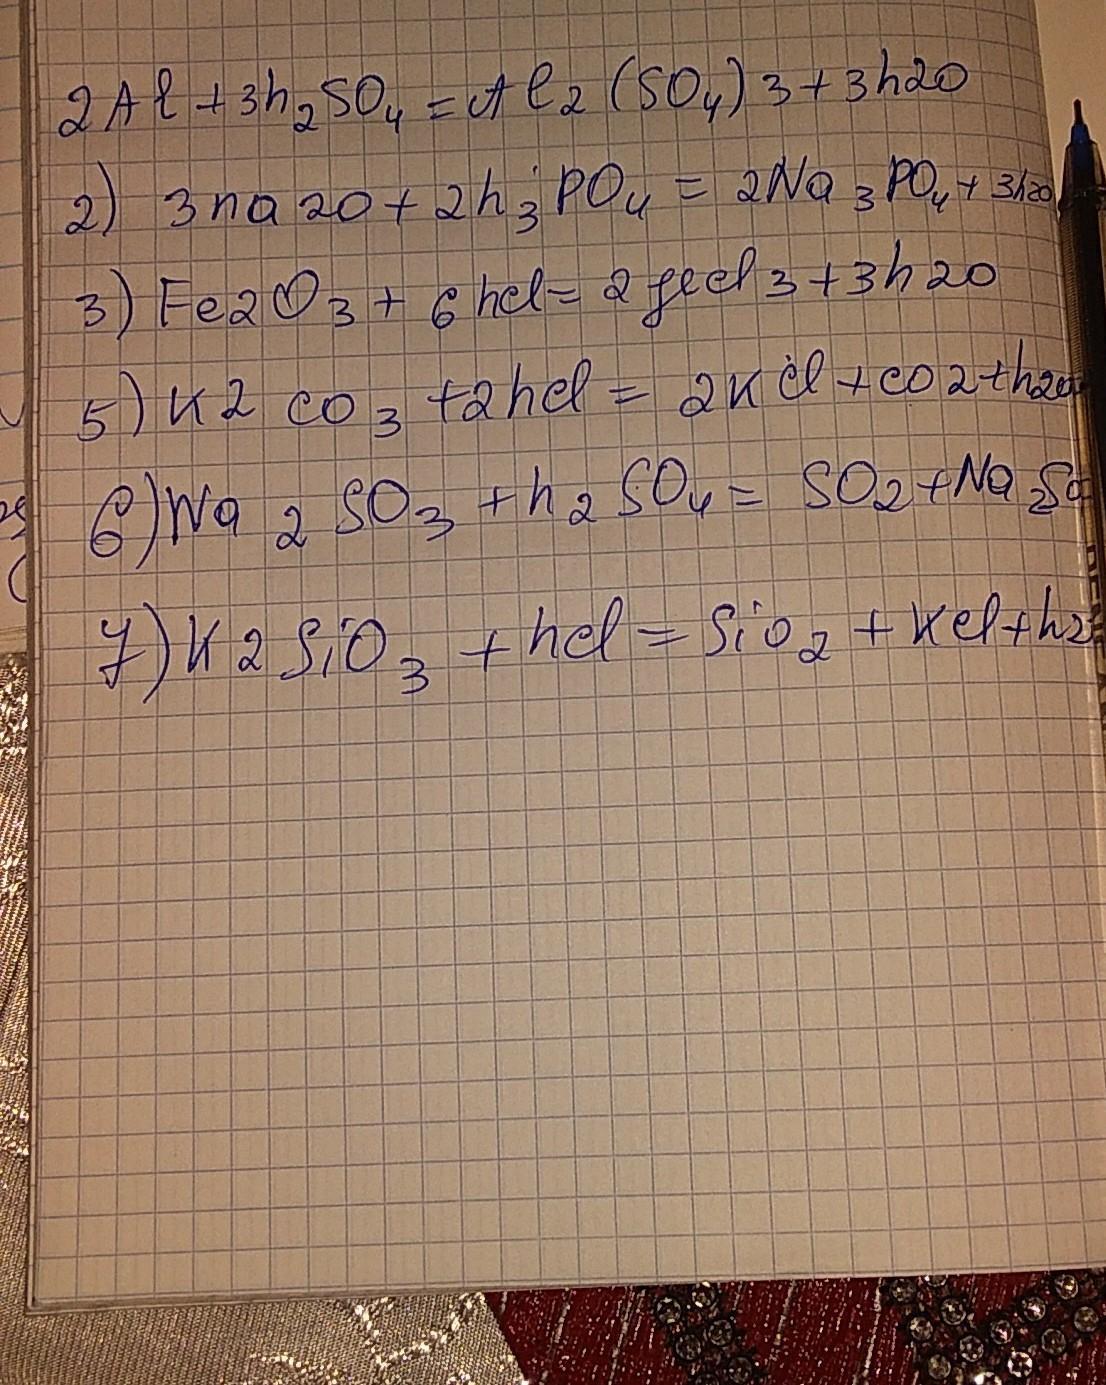 2Al+3h2SO4=Al2(SO4)3+3h2O
2) 3na2O+2h3PO4=2Na3PO4+3h2O
3) Fe2O3+6hcl=2fecl3+3h2O
5) K2CO3+2hcl=2Kcl+CO2+h2O
6) Na2SO3+h2SO4=SO2+Na2SO
7) K2SiO3+hcl=SiO2+Kcl+h2